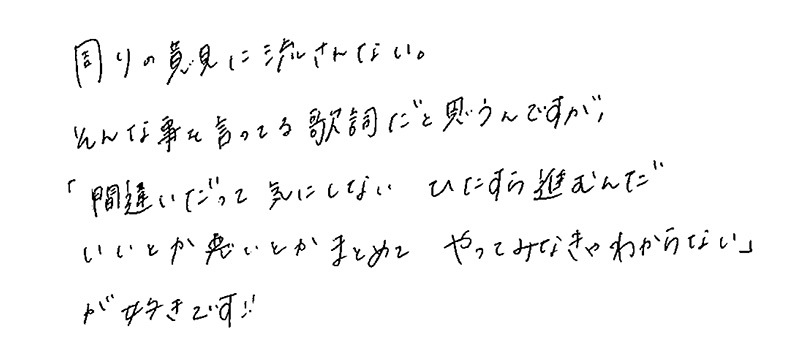 周りの意見に流さんない。
そんな事を言ってる歌詞だと思うんですが、
「間違いだって気にしない ひたすら進むんだ
いいとか悪いとかまとめて やってみなきゃわからない」
が好きです!!